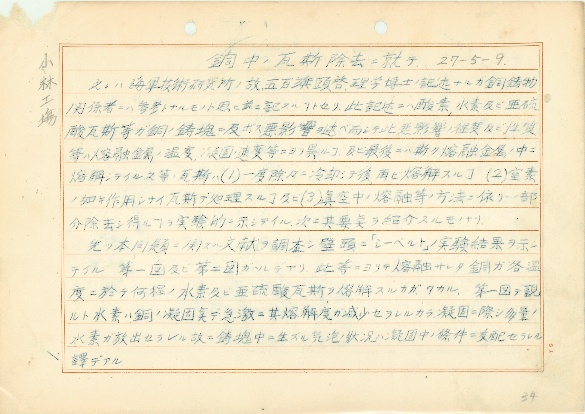 銅中ノ瓦斯除去ニ就テ 27-5-9.
小林工場
之レハ海軍技術研究所ノ故五百旗頭啓理学博士ノ記述ナルガ銅鋳物
関係者ニハ参考ナルモノト思ヒ其ニ記スル下トセリ、此記述ハ酸素、水素及ビ亜硫
酸瓦斯等ガ銅ノ鋳塊ニ及ボス悪影響ヲ述ベ而シテ此悪影響ノ程度及ビ性質
等ハ熔融金属ノ温度、凝固ノ速度等ニヨリ異ル丁、及ビ最後ニハ斯ク熔融金属ノ中ニ
熔解シテイル之等ノ瓦斯ハ(1)一度除々ニ冷却シテ後再ビ熔解スル丁 (2)窒素
ノ如キ作用シナイ瓦斯デ処理スル丁及ビ(3)真空中ノ熔融等ノ方法ニ依リ一部
分除去シ得ル丁ヲ実験的ニ示シテイル、次ニ其要点ヲ紹介スルモノナリ.
先ヅ本問題ニ関スル文献ヲ調査シ劈頭ニ「シーベルト」ノ実験結果ヲ示シ
テイル 第一図及ビ第二図ガソレデアリ. 此等ニヨリテ熔融サレタ銅ガ各温
度ニ於テ何程ノ水素及ビ亜硫酸瓦斯ヲ熔解スルカガワカル. 第一図ヲ観
ルト水素ハ銅ノ凝固点デ急激ニ其熔解度ガ減少セラレルカラ凝固ニ際シ多量ノ
水素ガ放出セラレル故ニ鋳塊中ニ生ズル気泡ノ状況ハ凝固中ノ條件ニ支配セラレル
譯デアル
34